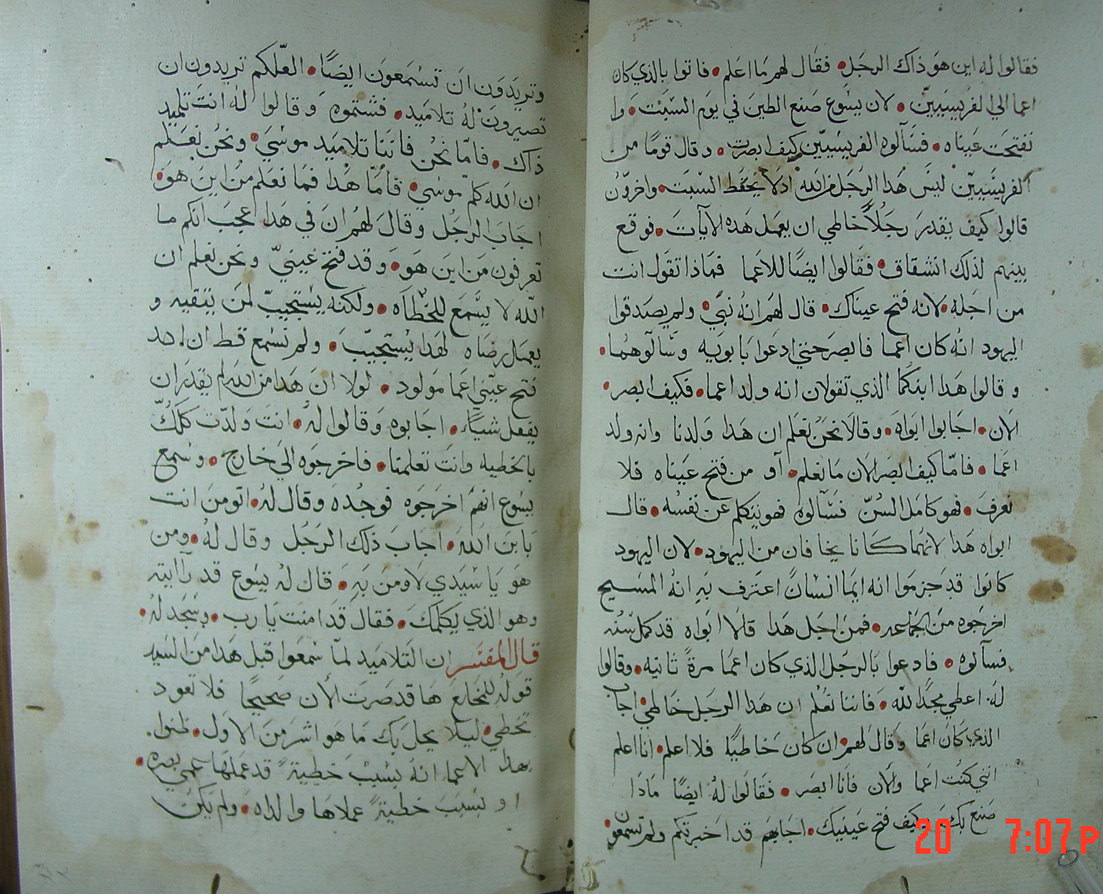 فقالوا له اين هو ذاك الرجل • فقال لهم ما اعلم • فاتوا بالذي كان
اعما الي الفريسيين • لان يسوع صنع الطين في يوم السبت • وا
نفتحت عيناه • فسالوه الفريسيين كيف ابصرت • وقال قومًا من
الفريسيين ليس هذا الرجل من الله اذ لا يحفظ السبت • واخرون
قالوا كيف يقدر رجلاً خاطي ان يعمل هذه الايات • فوقع
بينهم لذلك انشقاف • فقالوا ايضًا للاعما فماذا تقول انت
من اجله • لانه فتح عيناك • قال لهم انه نبي • ولم يصدقوا
اليهود انه كان اعما فابصر حتي ادعوا بابويه وسالوهما •
وقالوا هذا ابنكما الذي تقولان انه ولد اعما • فكيف ابصر •
الان • اجابوا ابواه • وقالا نحن نعلم ان هذا ولدنا وانه ولد
اعما • فامّا كيف ابصر الان ما نعلم • او من فتح عيناه فلا
نعرف • فهو كامل السنّ فسالوه فهو يتكلم عن نفسه • قال
ابواه هذا لانهما كانا يخافان من اليهود • لان اليهود
كانوا قد جزموا انه ايما انسانًا اعترف به انه المسيح
اخرجوه من الجماعه • فمن اجل هذا قالا ابواه قد كمل سنه
فسالوه • فادعوا بالرجل الذي كان اعما مرة ثانيه • وقالوا
له اعطي مجدًا لله • فاننا نعلم ان هذا الرجل خاطي • اجاب
الذي كان اعما وقال لهم ان كان خاطيًا فلا اعلم • انا اعلم
انني كنت اعما والان فانا ابصر • فقالوا له ايضًا ماذا
صنع لك • وكيف فتح عينيك • اجابهم قد اخبرتكم ولم تسمعوا
وتريدون ان تسمعون ايضًا • العلّكم تريدون ان
تصيرون له تلاميد • فشتموه وقالوا له انت تلميد
ذاك • فامّا نحن فاننا تلاميد موسي • ونحن نعلم
ان الله كلم موسي • فامّا هذا فما نعلم من اين هو •
اجاب الرجل وقال لهم ان في هذا عجب انكم ما
تعرفون من اين هو • وقد فتح عينيّ ونحن نعلم ان
الله لا يسمع للخطاه • ولكنه يستجيب لمن يتقيه و
يعمل رضاه لهذا يستجيب • ولم نسمع قط ان احد
فتح عيني اعما مولود • لولا ان هذا من الله لم يقدر ان
يفعل شياء • اجابوه وقالوا له • انت ولدت كلك
بالخطيه وانت تعلمنا • فاخرجوه الي خارج • وسمع
يسوع انهم اخرجوه فوجده وقال له • اتومن انت
بابن الله • اجاب ذلك الرجل وقال له • ومن
هو يا سيدي لاومن به • قال له يسوع قد رايته
وهو الذي يكلمك • فقال قد امنت يا رب • وسجد له •
قال المفسر ان التلاميد لما سمعوا قبل هذا من السيد
قوله للمخلع ها قد صرت الان صحيحًا فلا تعود
تخطي • ليلا يحل بك ما هو اشر من الاول • ظنوا •
هذا الاعما انه بسبب خطيةً قد عملها عمي بصره •
او بسبب خطيةً عملاها والداه • ولم يكن
20 7:07 P